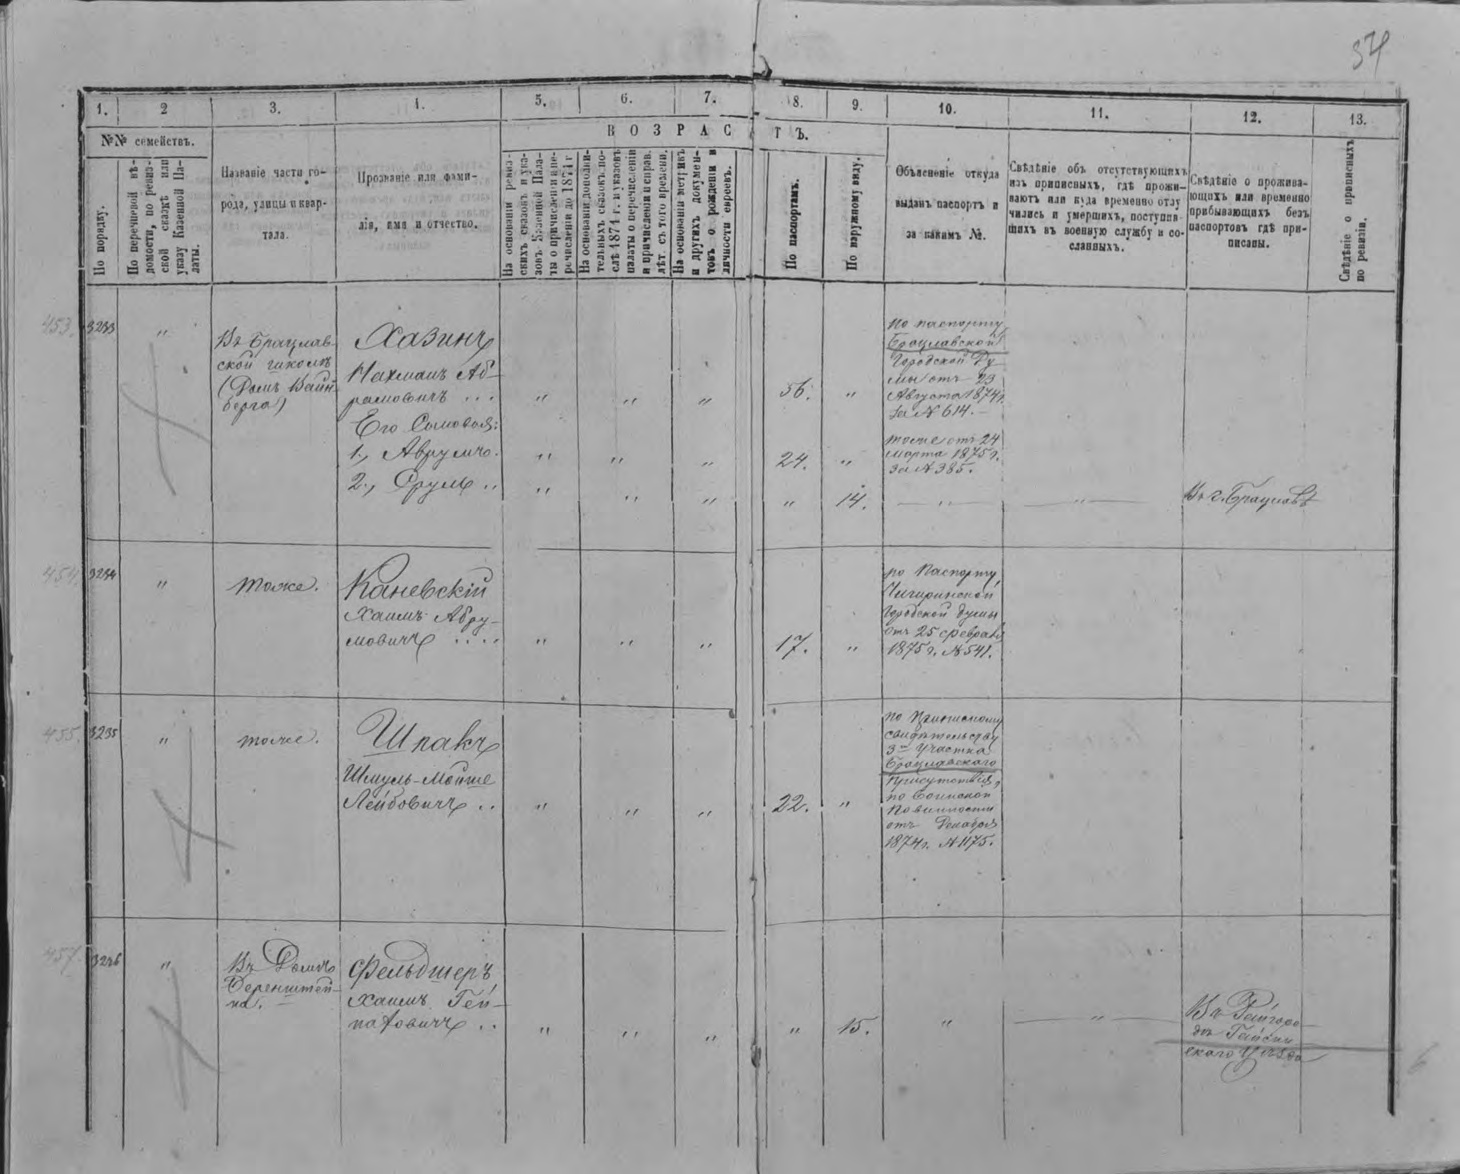 37
1.
2
3.
4.
5.
6.
7.
8.
9.
10.
11.
12.
13.
№№ семействъ.
ВОЗРАСТЪ.
По порядку.
По перечневой вѣ-
домости, по ревиз-
ской сказкѣ или
указу Казенной Па-
латы.
Названіе части го-
рода, улицы и квар-
тала.
Прозваніе или фами-
лія, имя и отчество.
На основаніи ревиз-
скихъ сказокъ и ука-
зовъ Казенной Пала-
ты о причисленіи и пе-
речисленіи до 1874 г
На основаніи дополни-
тельныхъ сказокъ по-
слѣ 1874 г. и указовъ
палаты о перечисленіи
и причисленіи и справ.
лѣт. съ того времени.
На основаніи метрикъ
и другихъ докумен-
товъ о рожденіи и
личности евреевъ.
По паспортамъ.
По наружному виду.
Объясненіе откуда
выданъ паспортъ и
за какимъ №.
Свѣдѣніе объ отсутствующихъ
изъ приписныхъ, гдѣ прожи-
ваютъ или куда временно отлу
чились и умершихъ, поступив-
шихъ въ военную службу и со-
сланныхъ.
Свѣдѣніе о прожива-
ющихъ или временно
прибывающихъ безъ
паспортовъ гдѣ при-
писаны.
Свѣдѣніе о приписныхъ
по ревизіи.
453.
3233
"
Въ Брацлав-
ской школѣ
(Домъ Вайн-
берга)
Хазинъ
Нахманъ Аб-
рамовичъ ...
" " "
56.
"
По паспорту
Брацлавской
Городской Ду-
мы отъ 23
Августа 1874г.
за № 614.-
Его Сыновья:
1., Аврумъ.
" " "
24.
"
тоже отъ 24
марта 1875г.
за № 385.
2., Срулъ ..
" " " "
14.
— " —
— " —
Въ г. Брацлавѣ
454
3234
"
тоже.
Каневскій
Хаимъ Абру-
мовичъ ....
" " "
17.
"
по Паспорту
Чигиринской
Городской Думы
отъ 25 февраля
1875г. № 541.
455.
3235
"
тоже.
Шпакъ
Шмуль-Мойше
Лейбовичъ ..
" " "
22.
"
по Приписному
свидѣтельству
3го Участка
Брацлавскаго
Присутствія,
по воинской
повинности
отъ Декабря
1874г. № 1175.
457.
3236
"
Въ Домѣ
Беренштей-
на.
Фельдшеръ
Хаимъ Гей-
натовичъ ..
" " " "
15.
"
— " —
Въ Райгоро-
дѣ Гайсин-
скаго Уѣзда